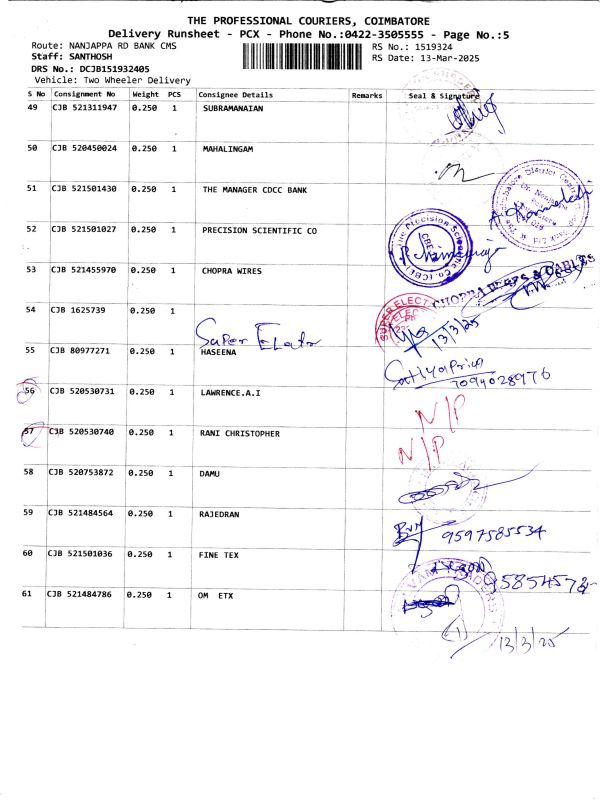 THE PROFESSIONAL COURIERS, COIMBATORE
Delivery Runsheet - PCX - Phone No.:0422-3505555 - Page No.:5
Route: NANJAPPA RD BANK CMS
RS No.: 1519324
Staff: SANTHOSH
RS Date: 13-Mar-2025
DRS No.: DCJB151932405
Vehicle: Two Wheeler Delivery
S No Consignment No Weight PCS Consignee Details Remarks Seal & Signature
49 CJB 521311947 0.250 1 SUBRAMANAIAN
50 CJB 520450024 0.250 1 MAHALINGAM
51 CJB 521501430 0.250 1 THE MANAGER CDCC BANK
52 CJB 521501027 0.250 1 PRECISION SCIENTIFIC CO
53 CJB 521455970 0.250 1 CHOPRA WIRES
54 CJB 1625739 0.250 1
13/3/25
55 CJB 80977271 0.250 1 HASEENA
Sathyapriya
7094028976
56 CJB 520530731 0.250 1 LAWRENCE.A.I N/P
57 CJB 520530740 0.250 1 RANI CHRISTOPHER N/P
58 CJB 520753872 0.250 1 DAMU
59 CJB 521484564 0.250 1 RAJEDRAN 9597585534
60 CJB 521501036 0.250 1 FINE TEX
61 CJB 521484786 0.250 1 OM ETX
13/3/25